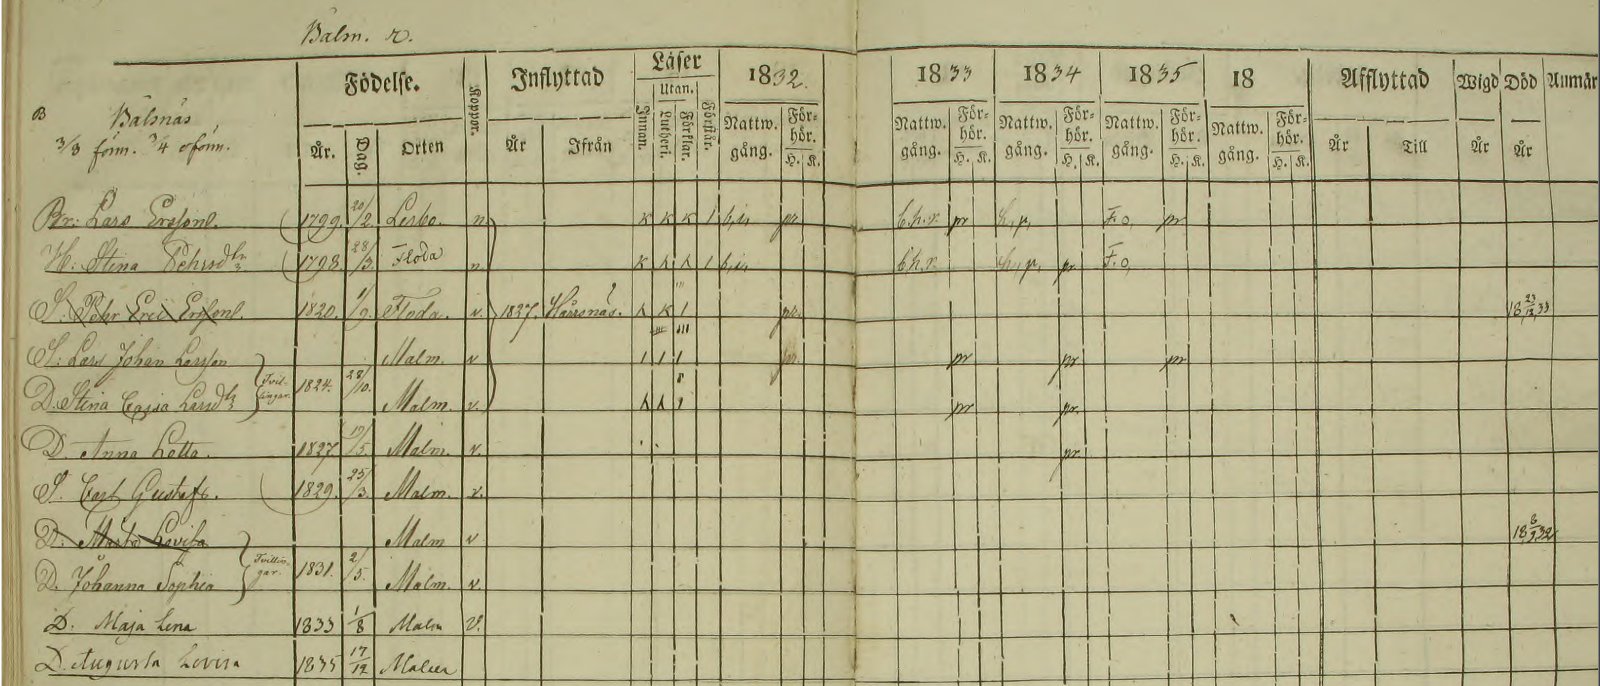 Balm. r.
Födelse. Koppor. Inflyttad Läser 1832. 1833 1834 1835 18 Afflyttad Wigd Död Anmär
B Balsnäs Innan. Utan. Förstår.
År. Dag. Orten År Ifrån Lutheri. Förklar. Nattw. gång. För-hör. H. K. Nattw. gång. För-hör. H. K. Nattw. gång. För-hör. H. K. Nattw. gång. För-hör. H. K. Nattw. gång. För-hör. H. K. År Till År År
Br: Lars Erssonl. 1799. 20/2 Lerbo. n k k k 1 pr b.h.r. pr F.o, pr
H: Stina Pehrsdtr 1798. 28/3. Floda n k h h 1 b.h.r. pr F.o,
S: Pehr Eric Erssonl. 1820. 1/9. Floda. v. 1827. Harsnäs. h k 1 pr. 18 23/12 33
S: Lars Johan Larsson Malm. v 1 1 1 pr. pr pr pr
Tvillingar. 1824. 28/10.
D. Stina Cajsa Larsdtr Malm. v. h h 1 pr pr.
D. Anna Lotta. 1827 19/5. Malm. v. pr
S. Carl Gustaf. 1829. 25/3. Malm. v.
D. Märta Lovisa Malm v 18 8/9 32
Tvillingar. 1831. 2/5.
D. Johanna Sophia Malm. v.
D. Maja Lena 1833 1/8 Malm v.
D. Augusta Lovisa 1835 17/12 Malm